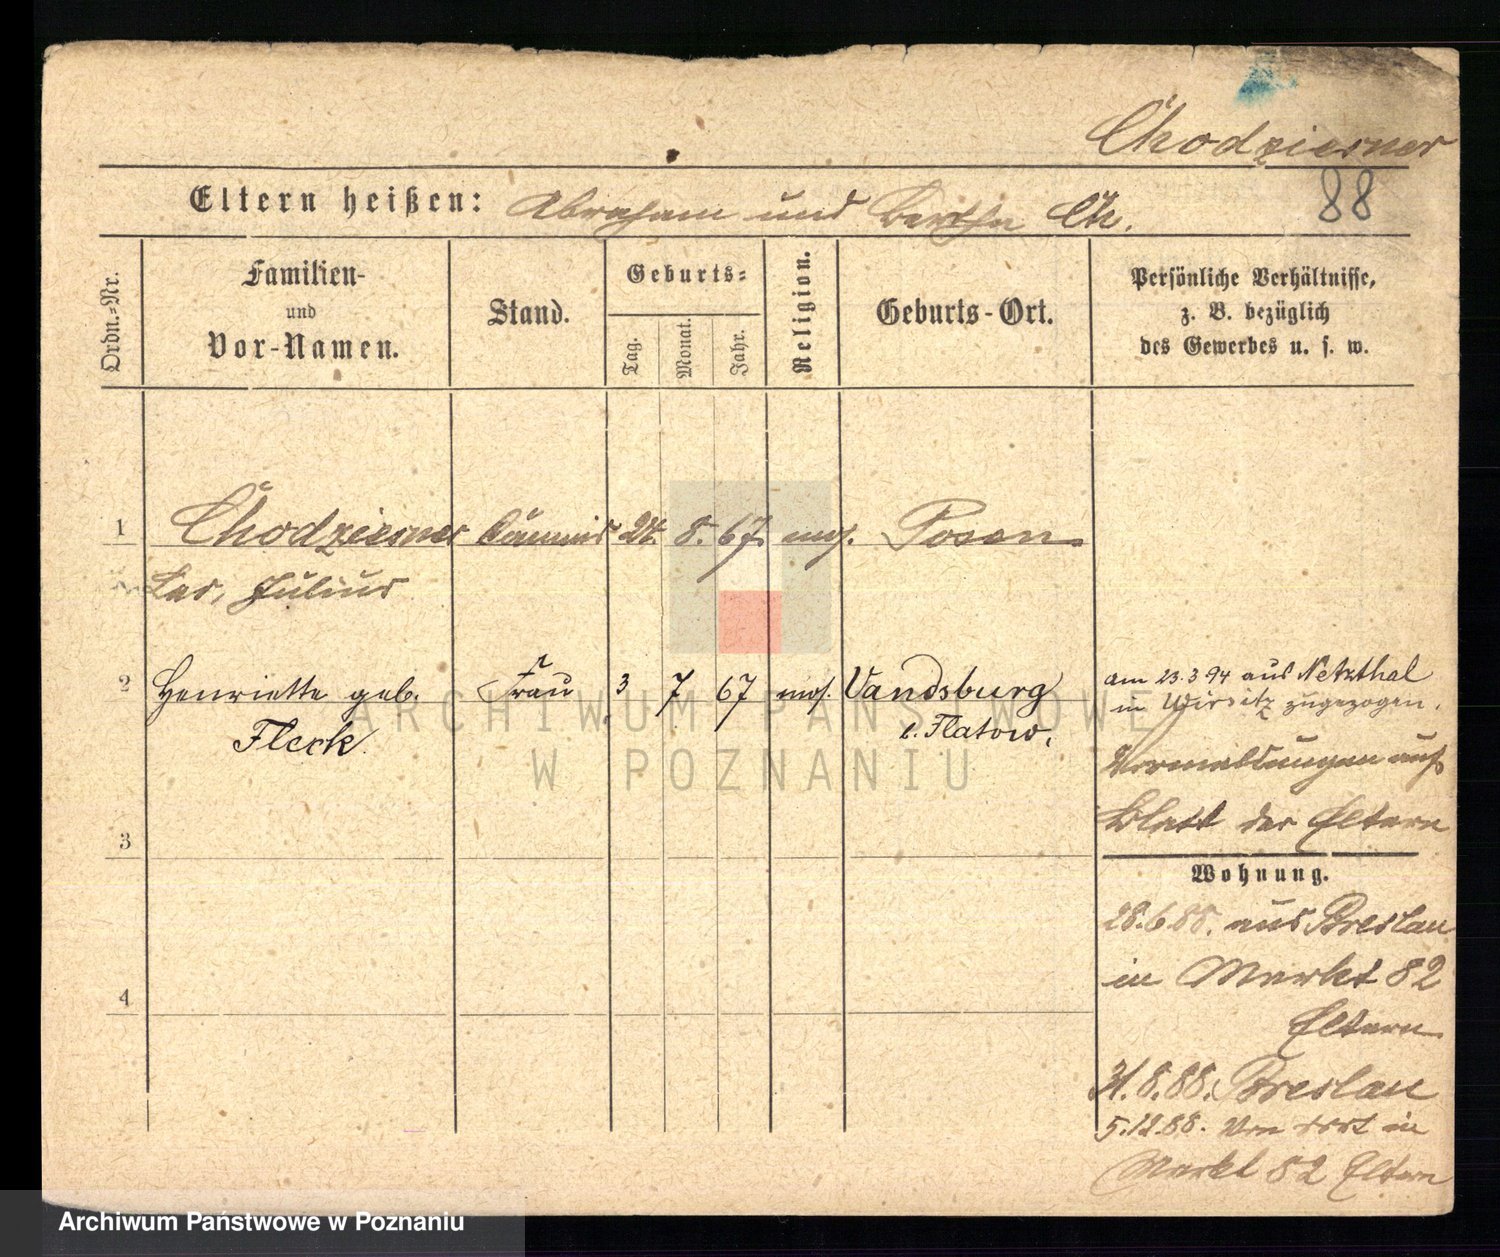 Chodziesner
88
Eltern heißen: Abraham und Bertha Ch.
Ordn.-Nr.
Familien-
und
Vor-Namen.
Stand.
Geburts-
Tag.
Monat.
Jahr.
Religion.
Geburts-Ort.
Persönliche Verhältnisse,
z. B. bezüglich
des Gewerbes u. s. w.
1 Chodziesner Commis 24. 8. 67. mos. Posen
Julius
2 Henriette geb. Frau 3 7 67 mos. Vandsburg
Fleck
Flatow.
am 23.3 94 aus Netzthal
in Wirsitz zugezogen.
Vermeldungen auf
Blatt der Eltern
3
Wohnung.
28.6.88. aus Breslau
in Markt 82
Eltern
4
31.8.88. Breslau
5.12.88. Von dort in
Markt 82 Eltern
ARCHIWUM PAŃSTWOWE
W POZNANIU
Archiwum Państwowe w Poznaniu